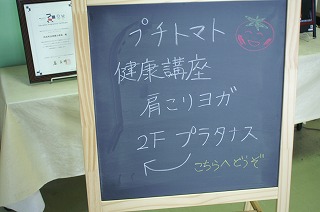 プチトマト
健康講座
肩こりヨガ
2F プラタナス
こちらへどうぞ